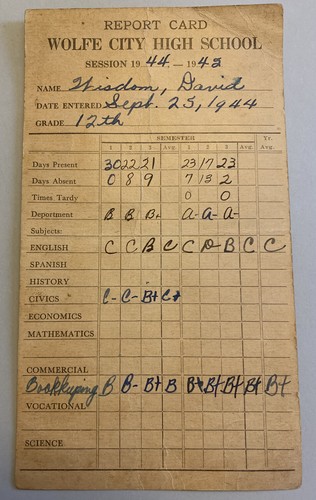 REPORT CARD
WOLFE CITY HIGH SCHOOL
SESSION 1944 — 1945
NAME Wisdom, David
DATE ENTERED Sept. 25, 1944
GRADE 12th
SEMESTER
1 2 3 Avg. 1 2 3 Avg. Yr. Avg.
Days Present 30 22 21 23 17 23
Days Absent 0 8 9 7 13 2
Times Tardy 0 0
Department B B B+ A- A- A-
Subjects:
ENGLISH C C B C C D B C C
SPANISH
HISTORY
CIVICS C- C- B+ C+
ECONOMICS
MATHEMATICS
COMMERCIAL
Bookkeeping B B- B+ B B+ B+ B+ B+ B+
VOCATIONAL
SCIENCE